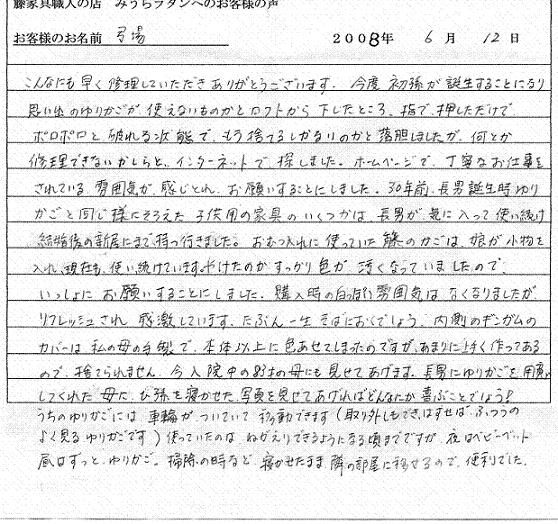 籐家具職人の店 みうらラタンへのお客様の声
お客様のお名前 弓場 2008年 6月 12日
こんなにも早く修理していただきありがとうございます。今度初孫が誕生することになり
思い出のゆりかごが使えないものかとロフトから下したところ、指で押しただけで
ボロボロと破れる状態で、もう捨てるしかないのかと落胆しましたが、何とか
修理できないかしらと、インターネットで探しました。ホームページで、丁寧なお仕事を
されている雰囲気が感じとれ、お願いすることにしました。30年前、長男誕生時ゆり
かごと同じ様にそろえた子供用の家具のいくつかは、長男が気に入って使い続け
結婚後の新居にまで持って行きました。おむつ入れに使っていた籐のかごは、娘が小物を
入れ、現在も使い続けています。やけたのかすっかり色が汚くなっていましたので
いっしょにお願いすることにしました。購入時の白っぽい雰囲気はなくなりましたが
リフレッシュされ感激しています。たぶん一生そばにおくでしょう。内側のギンガムの
カバーは私の母の手製で、本体以上に色あせてしまったのですが、あまりに上手く作ってある
ので、捨てられません。今入院中の母にも見せてあげます。長男にゆりかごを用意
してくれた母に、ひ孫を寝かせた写真を見せてあげればどんなにか喜ぶことでしょう!
うちのゆりかごには車輪がついていて移動できます(取り外しもでき、はずせば、ふつうの
よく見るゆりかごです)使っていたのはねがえりできるようになる頃までですが、夜はベビーベッド
昼はずっと、ゆりかご。掃除の時など寝かせたまま隣の部屋に移せるので、便利でした。